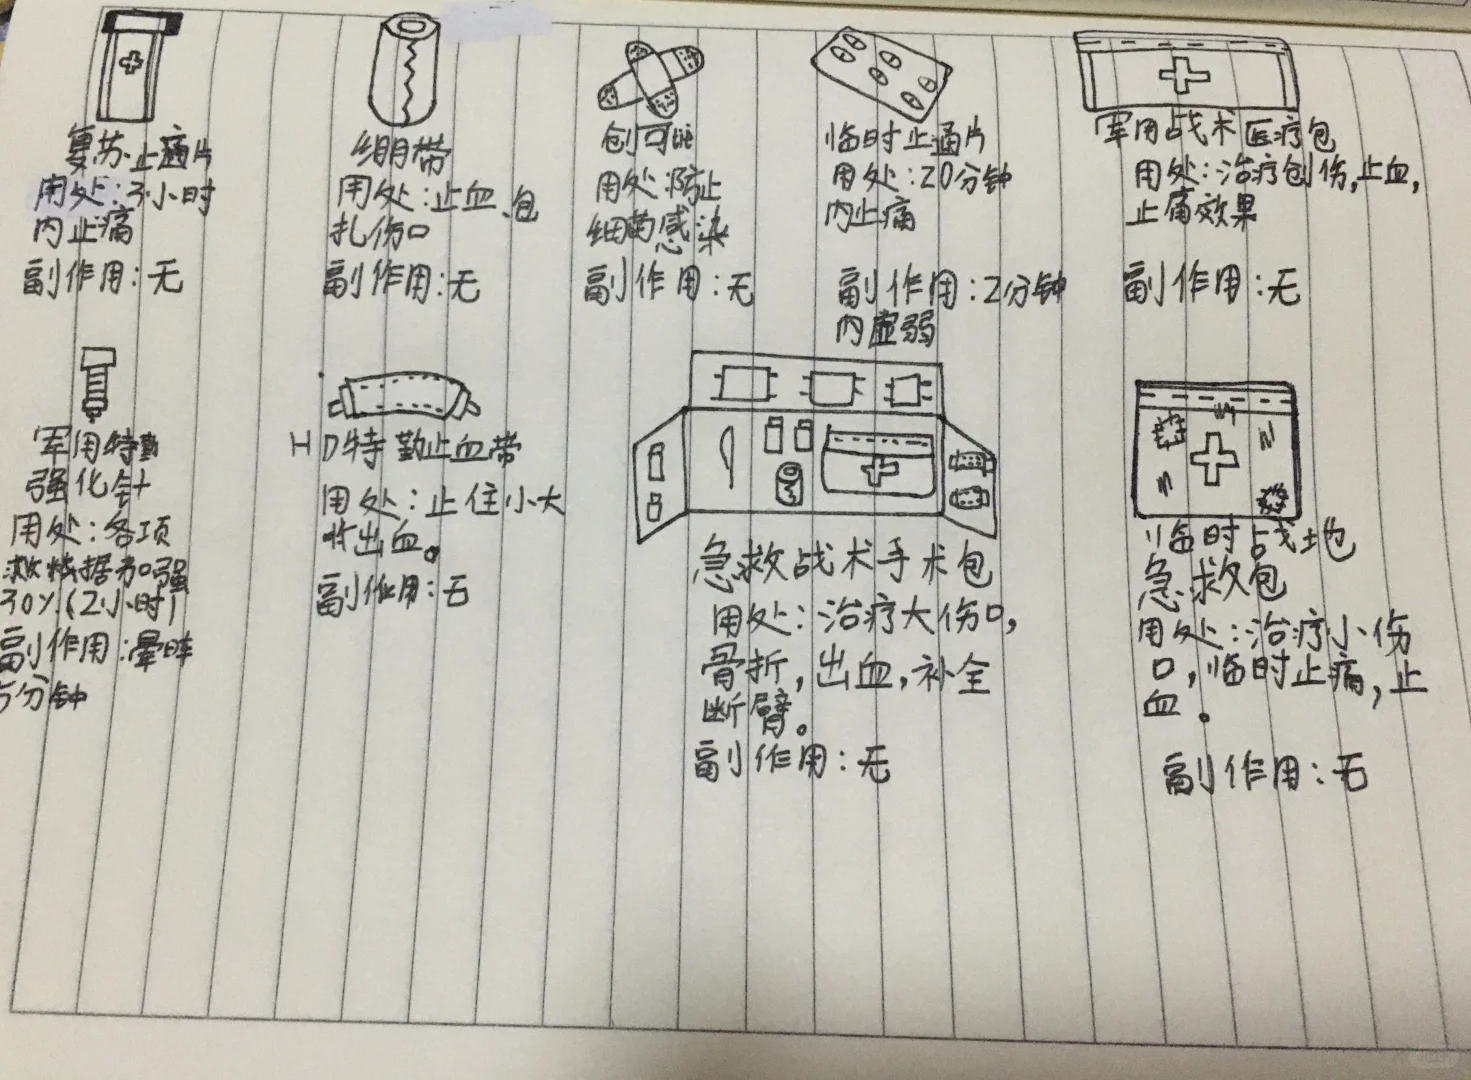 复苏止痛片
用处:3小时
内止痛
副作用:无
绷带
用处:止血、包
扎伤口
副作用:无
创可贴
用处:防止
细菌感染
副作用:无
临时止通片
用处:20分钟
内止痛
副作用:2分钟
内虚弱
军用战术医疗包
用处:治疗创伤,止血,
止痛效果
副作用:无
军用特勤
强化针
用处:各项
数据加强
30%(2小时)
副作用:晕眩
5分钟
HD特勤止血带
用处:止住小大
出血。
副作用:无
急救战术手术包
用处:治疗大伤口,
骨折,出血,补全
断臂。
副作用:无
临时战地
急救包
用处:治疗小伤
口,临时止痛,止
血。
副作用:无